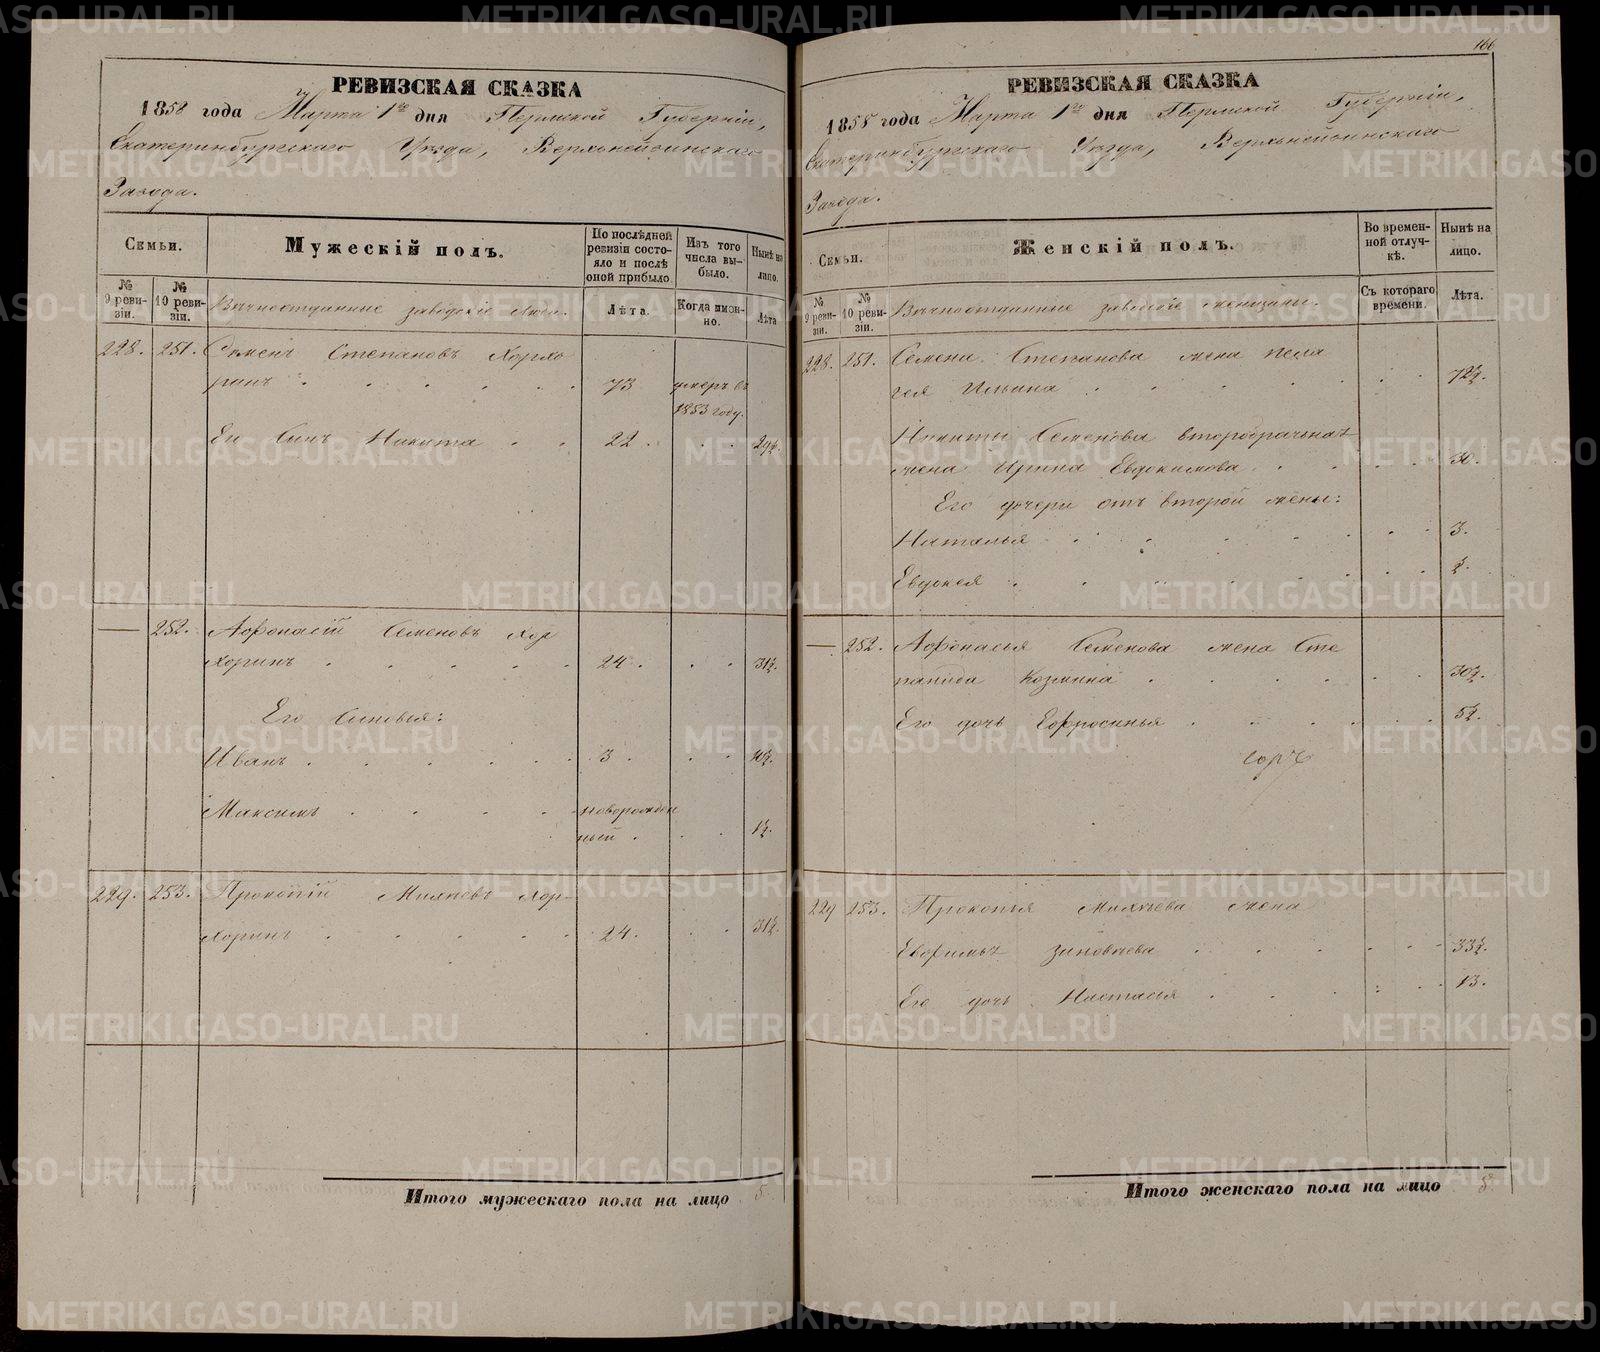 РЕВИЗСКАЯ СКАЗКА
1858 года Марта 1го дня Пермской Губерніи,
Екатеринбургскаго Уѣзда, Верхънейвинскаго
Завода.
Семьи.
Мужескій полъ.
По послѣдней ревизіи состояло и послѣ оной прибыло
Изъ того числа выбыло.
Нынѣ на лицо.
№ 9 ревизіи.
№ 10 ревизіи.
Вѣчноотданные заводскіе люди.
Лѣта.
Когда именно.
Лѣта
228. 251. Семенъ Степановъ Хорхо
ринъ . . . . . . 73 умеръ въ
1853 году.
Ев Сынъ Никита . . 22 . . . 29½.
— 252. Афонасій Семеновъ Хор
хоринъ . . . . . 24 . . . 31½.
Его Сыновья:
Иванъ . . . . . . 3 . . . 10½.
Максимъ . . . . новорожден
ный . . . 1½.
229. 253. Прокопій Михѣевъ Хор-
хоринъ . . . . . 24. . . 31½.
Итого мужескаго пола на лицо 5.
166
РЕВИЗСКАЯ СКАЗКА
1858 года Марта 1го дня Пермской Губерніи,
Екатеринбургскаго Уѣзда, Верхънейвинскаго
Завода.
Семьи.
Женскій полъ.
Во временной отлучкѣ.
Нынѣ на лицо.
№ 9 ревизіи.
№ 10 ревизіи.
Вѣчноотданные заводскіе женщины.
Съ котораго времени.
Лѣта.
228. 251. Семена Степанова жена Пела
гея Ильина . . . . . . . 72½.
Никиты Семенова второбрачная
жена Ирина Евдокимова . . . . . 30.
Его дочери отъ второй жены:
Наталья . . . . . . . 3.
Евдокея . . . . . . . ½.
— 252. Афонасья Семенова жена Сте
панида Козмина . . . . . . . 30½.
Его дочь Ефросинья . . . . . . 5½.
229 253. Прокопья Михѣева жена
Евфимья Зиновьева . . . . . . 33½.
Его дочь Настасья . . . . . . 13.
Итого женскаго пола на лицо 8.
METRIKI.GASO-URAL.RU